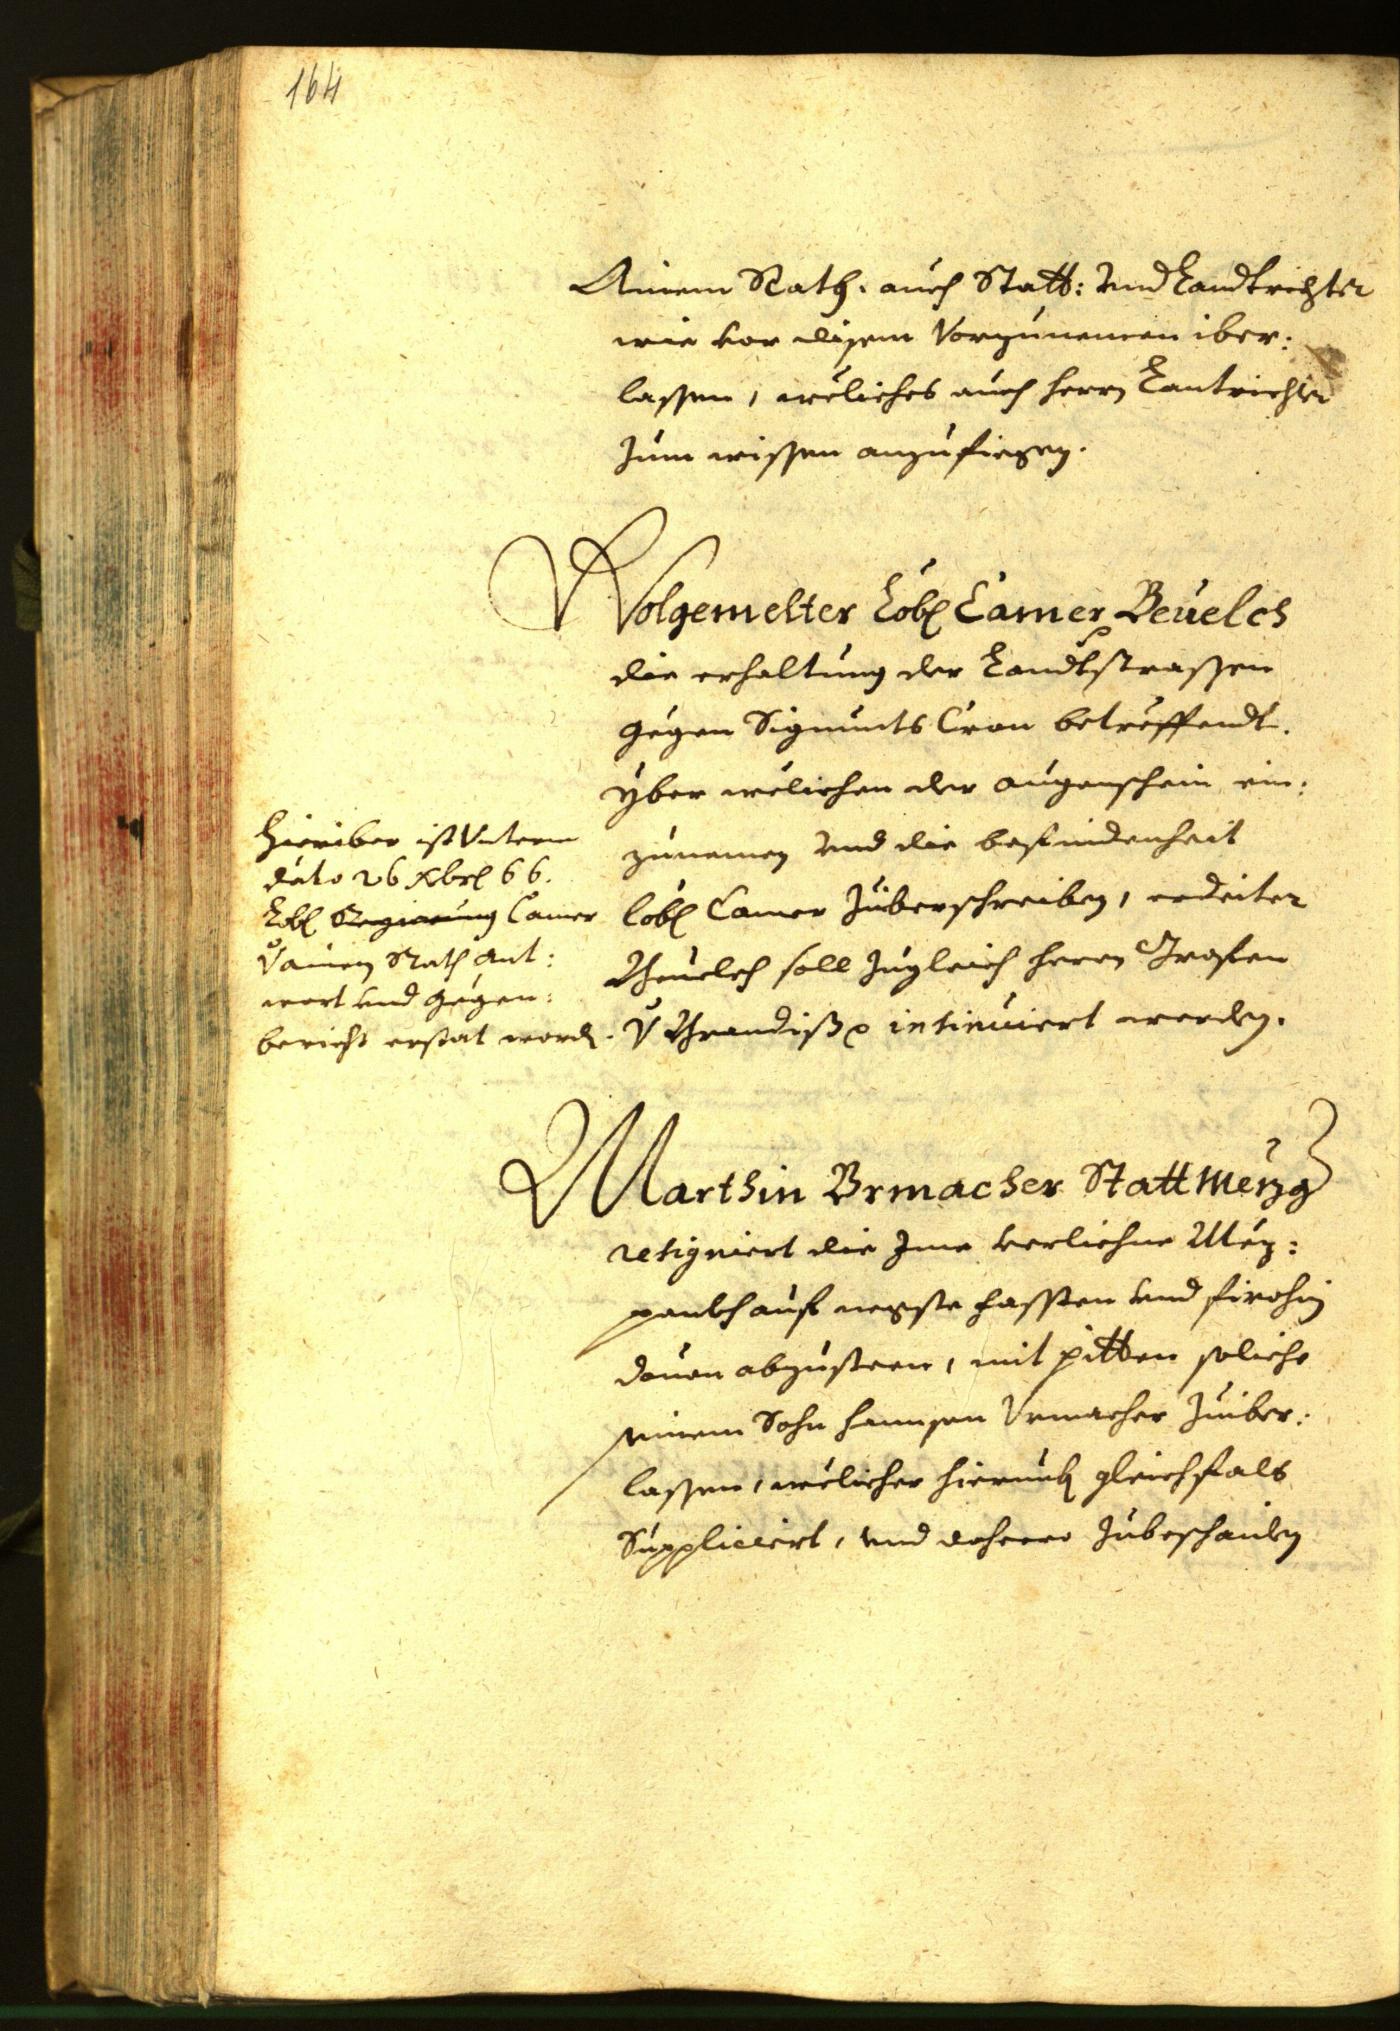 164
Ainem Rath, auch Statt: vnd Landtrichter
wie vor disem Vorzunemen iber:
lassen, weliches auch herrn Lantrichter
zum wissen anzufiegen.
Wolgemelter Löbl Camer Beuelch
die erhaltung der Landtstrassen
gegen Sigmunts Cron betreffendt.
yber welichen der augenschein ein:
zunemen vnd die befindenheit
löbl Camer zuüberschreiben, erdeiter
Beuelch soll zugleich herrn Grafen
V Brandiß intimiert werden.
Hieriber ist Vnterm
dato 26 Xbris 66.
Löbl Regierung Camer
Vainem Rath Ant:
wort vnd gegen:
bericht erstat worden.
Marthin Vrmacher Stattmezg
resigniert die Ime verlichne Mez:
panckh auf negste fassten vnd firohin
dauon abzusteen, mit pitten soliche
seinem Sohn hannsen Vrmacher zuiber:
lassen, welicher hierumb gleichfals
Suppliciert, vnd dahero zubeschaiden